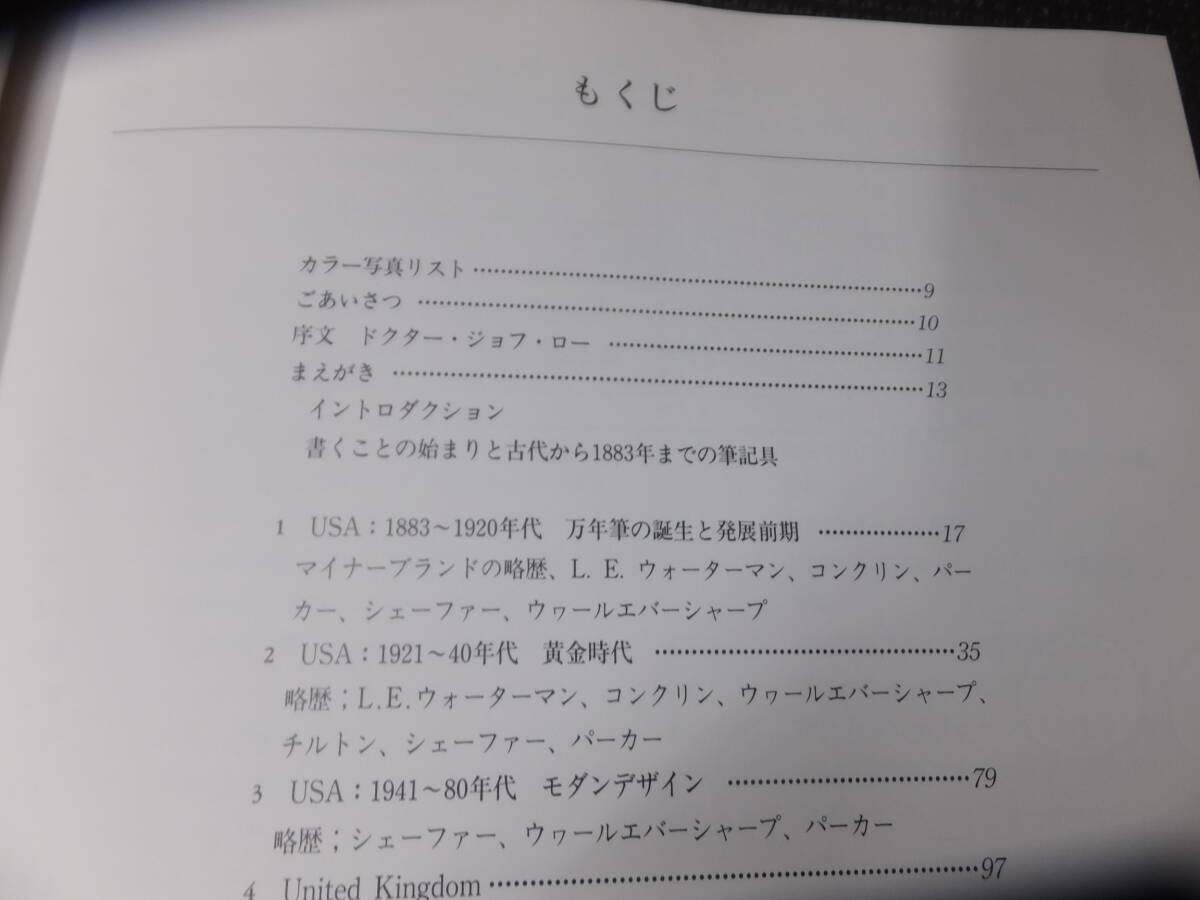 もくじ
カラー写真リスト……………………………………………9
ごあいさつ ………………………………………………10
序文　ドクター・ジョフ・ロー ………………………………11
まえがき ……………………………………………………13
イントロダクション
書くことの始まりと古代から1883年までの筆記具
1 USA：1883～1920年代　万年筆の誕生と発展前期 …………………17
マイナーブランドの略歴、L. E. ウォーターマン、コンクリン、パー
カー、シェーファー、ウヮールエバーシャープ
2 USA：1921～40年代　黄金時代 ………………………………35
略歴；L.E.ウォーターマン、コンクリン、ウヮールエバーシャープ、
チルトン、シェーファー、パーカー
3 USA：1941～80年代　モダンデザイン …………………………79
略歴；シェーファー、ウヮールエバーシャープ、パーカー
4 United Kingdom……………………………………………97